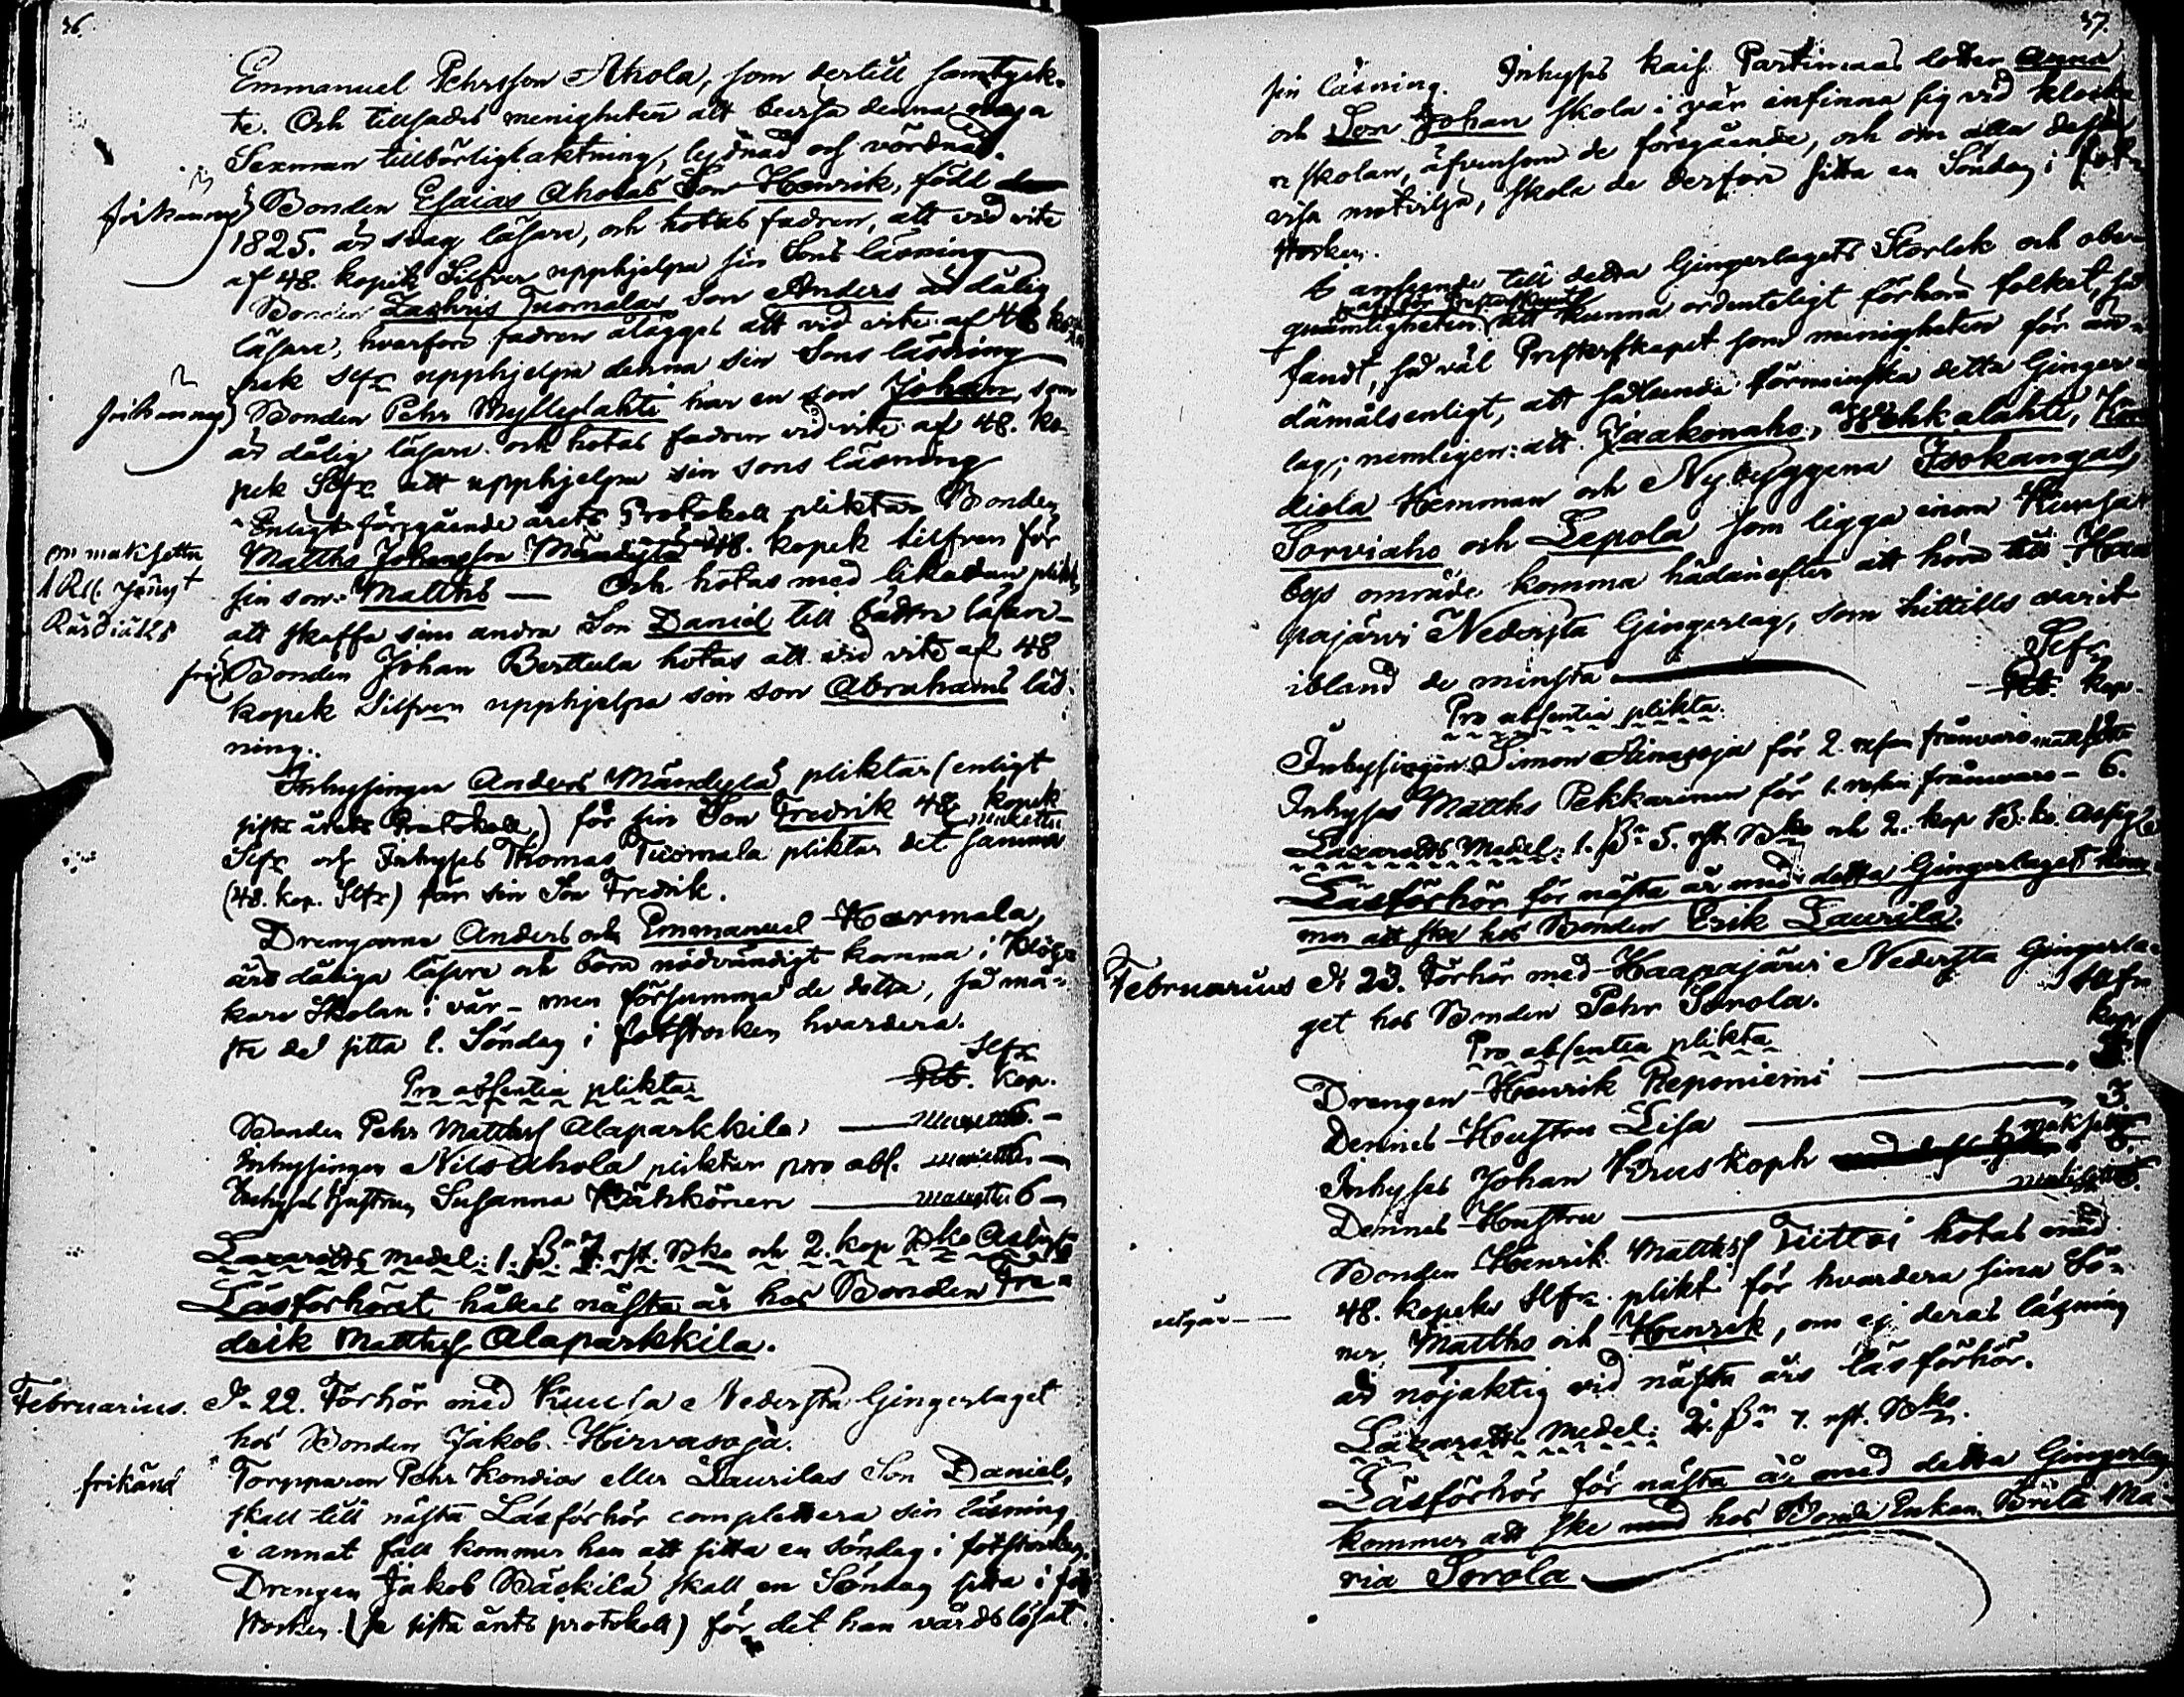 36.
Emmanuel Pehrsson Ahola, som dertill samtyck-
te. Och tillsades menigheten att bevisa denna
Sexman tillbörligt aktning, lydnad och vördnad.
frikännes Bonden Esaias Aholas Son Henrik, född
1825. är svag läsare, och hotas fadren, att vid vite
af 48. kopek Silfver upphjelpa sin Sons läsning
Bonden Zachris Tuomalas Son Anders är dålig
läsare, hvarföre fadren ålägges att vid vite af 48 ko-
pek Slfr upphjelpa denna sin Sons läsning
frikännes Bonden Pehr Myllylahti har en son Johan, som
är dålig läsare och hotas fadren vid vite af 48. ko-
pek Slfr att upphjelpa sin sons läsning
Enligt föregående årets Protokoll pliktar Bonden
on maksettu Matths Johansson Mändylä 48. kopek silfver för
1 Rbl. sin son Matths — Och hotas med likadan plikt,
att skaffa sin andra Son Daniel till bättre läsare
fri Bonden Johan Berttula hotas att vid vite af 48
kopek Silfver upphjelpa sin son Abrahams läs-
ning.
Inhysingen Anders Mändylä pliktar (enligt
sista årets Protokoll) för sin Son Fredrik 48 kopek
Slfr och Inhyses Thomas Tuomala pliktar det samma maksettu
(48. kop. Slfr) för sin Son Fredrik.
Drengarne Anders och Emmanuel Harmala,
äro dåliga läsare och böra nödvändigt komma i Klåc-
kare Skolan i vår – men försumma de detta, så må-
ste de sitta 1. Söndag i fotstocken hvardera.
Slfr
Pro absentia plikta Rub. kop.
Bonden Pehr Matthsf Alaparkkila — maksettu 6. —
Inhysingen Nils Ahola pliktar pro abs. maksettu —
Inhyses Hustru Susanna Kähkönen — maksettu 6 —
Lazaretts Medel: 1. Rst Bko och 2. kop Bko Assign
Läsförhöret hålles nästa år hos Bonden Fre-
drik Matthsf Alaparkkila.
Februarius. D. 22. Förhör med Kuusa Nedersta Gingerlaget
hos Bonden Jakob Hirvasoja.
frikänd Torpparen Pehr Kondios eller Laurilas Son Daniel,
skall till nästa Läsförhör complettera sin läsning
i annat fall kommer han att sitta en söndag i fotstocken.
Drengen Jakob Bäckilä skall en Söndag sitta i fot-
stocken (se sista årets protokoll) för det han vårdslösat
37.
sin läsning. Inhyses kaif. Partimaas dotter Anna
och Son Johan skola i vår infinna sig vid klocka-
re skolan, äfvensom de föregående, och om alla dessa
visa motvilja, skola de derföre sitta en Söndag i fot-
stocken.
I anseende till detta Gingerlagets Storlek och obe-
qvämligheten för Presterskapet att kunna ordenteligt förhöra folket,
fandt, så väl Presterskapet som menigheten för än-
damålsenligt, att sålunda förminska detta Ginger-
lag; nemligen: att Jaakonaho, Wehkalahti, Kon-
diola Hemman och Nybyggena Isokangas,
Sorviaho och Lepola som ligga inom Kuusa
bys område komma hädanefter att höra till Haa-
pajärvi Nedersta Gingerlag, som hittills varit
ibland de minsta
Slfr
Pro absentia plikta Rub. kop.
Inhysingen Simon Hinasoja för 2. resan frånvaro maksettu
Inhyses Matths Pekkarinen för 1. resan frånvaro – 6.
Lazaretts Medel: 1. 5. rst Bko och 2. kop B:ko Assign
Läsförhör för nästa år med detta Gingerlaget kom-
mer att ske hos Bonden Erik Laurila.
Februarius D. 23. Förhör med Haapajärvi Nedersta Gingerla-
get hos Bonden Pehr Sorola. Slfr
Pro absentia plikta kop.
Drengen Henrik Reponiemi — 3.
Dennes Hustru Lisa — 3.
Inhyses Johan Kruskoph maksettu
Dennes Hustru — maksettu 6.
Bonden Henrik Matthsf Tiittoi hotas med
48. kopeks Slfr plikt för hvardera sina Sö-
utgår — ner Matths och Henrik, om ej deras läsning
är nöjaktig vid nästa års läsförhör.
Lazaretts Medel: 2. 7. rst. Bko.
Läsförhör för nästa år med detta Gingerlag
kommer att ske hos Bonde Enkan Brita Ma-
ria Sorola